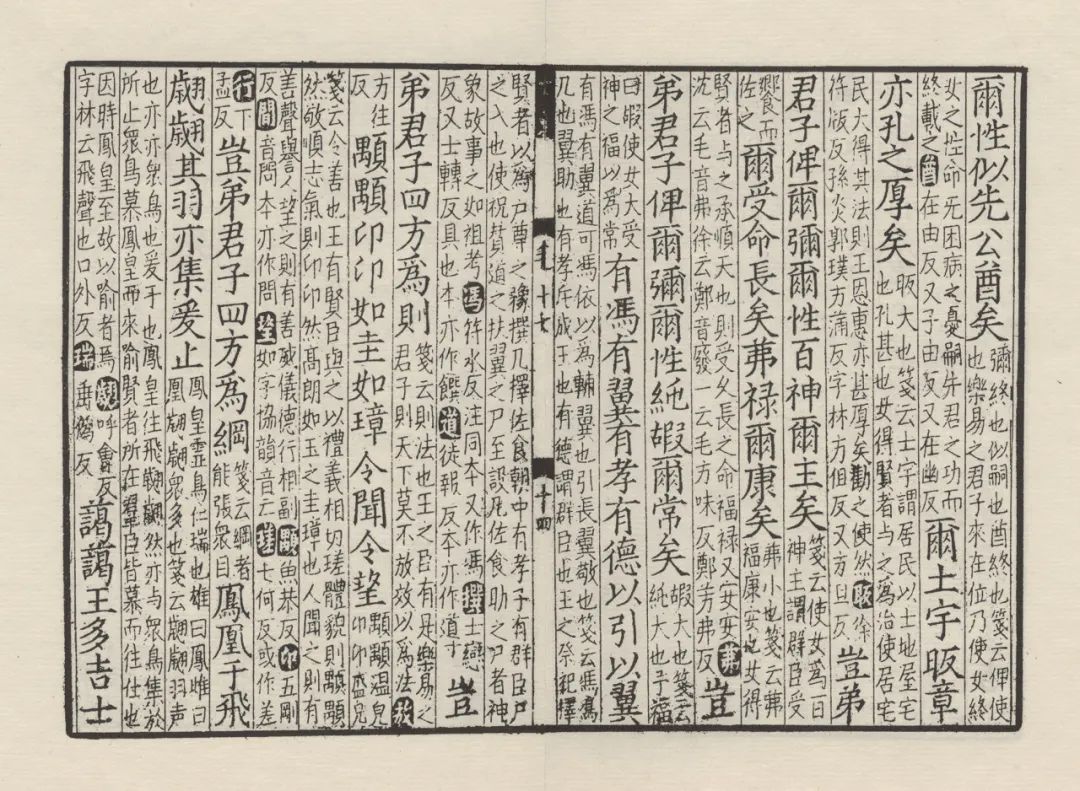 爾性似先公酋矣
彌終也似嗣也酋終也箋云俾使
也樂易之君子來在位乃使女終
女之性命无困病之憂嗣先君之功而
終載之酋在由反又子由反又在幽反
爾土宇昄章
亦孔之厚矣
昄大也箋云土宇謂居民以土地屋宅
也孔甚也女得賢者与之為治使居宅
民大得其法則王恩惠亦甚厚矣勸之使然昄徐
符版反孫炎郭璞方滿反字林方但反又方旦反
豈弟
君子俾爾彌爾性百神爾主矣
箋云使女為百
神主謂群臣受
饗而
佐之
爾受命長矣茀禄爾康矣
茀小也箋云茀
福康安也女得
賢者与之承順天也則受久長之命福禄又安女茀
沈云毛音弗徐云鄭音廢一云毛方味反鄭芳弗反
豈
弟君子俾爾彌爾性純嘏爾常矣
嘏大也箋云
純大也予福
曰嘏使女大受
神之福以為常
有馮有翼有孝有德以引以翼
有馮有翼道可馮依以為輔翼也引長翼敬也箋云馮馮
几也翼助也有孝斥成王也有德謂群臣也王之祭祀擇
毛十七
十四
賢者以為尸尊之豫撰几擇佐食朝中有孝子有群臣尸
之入也使祝賛道之扶翼之尸至設几佐食助之尸者神
象故事之如祖考馮符冰反注同本又作馮撰士戀
反又士轉反具也本亦作饌道徒報反本亦作導
豈
弟君子四方為則
箋云則法也王之臣有是樂易之
君子則天下莫不放效以為法放
方往
反
顒顒卬卬如圭如璋令聞令望
顒顒温皃
卬卬盛皃
箋云令善也王有賢臣與之以禮義相切瑳體貌則顒顒
然敬順志氣則卬卬然髙朗如玉之圭璋也人聞之則有
善聲譽人望之則有善威儀德行相副顒魚恭反卬五剛
反聞音問本亦作問望如字協韻音亡瑳七何反或作差
行下
孟反
豈弟君子四方為綱
箋云綱者
能張衆目
鳳凰于飛
翽翽其羽亦集爰止
鳳皇靈鳥仁瑞也雄曰鳳雌曰
凰翽翽衆多也箋云翽翽羽声
也亦亦衆鳥也爰于也鳳皇往飛翽翽然亦与衆鳥集於
所止衆鳥慕鳳皇而來喻賢者所在群臣皆慕而往仕也
因時鳳皇至故以喻焉翽呼會反
字林云飛聲也口外反瑞垂偽反
藹藹王多吉士